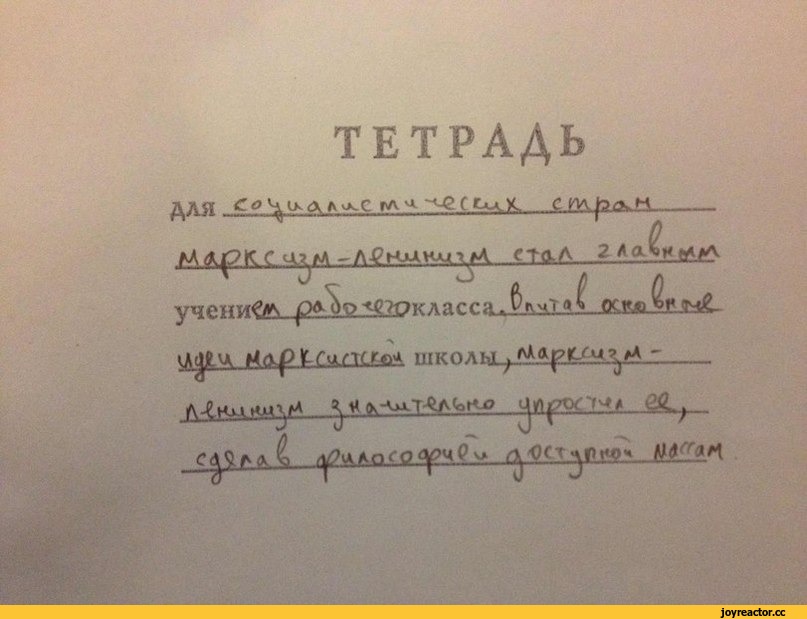 ТЕТРАДЬ
для социалистических стран
марксизм-ленинизм стал главным
учением рабочего класса. Впитав основные
идеи марксистской школы, марксизм-
ленинизм значительно упростил ее,
сделав философией доступной массам
joyreactor.cc